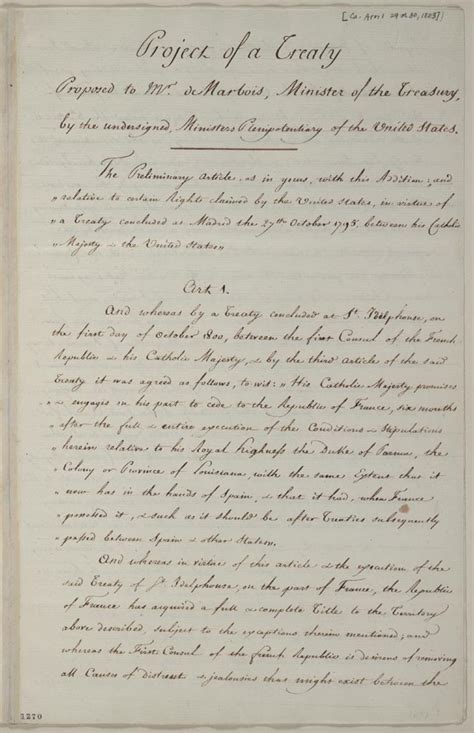 [Ca. April 29 or 30, 1803]
Project of a Treaty
Proposed to Mr. de Marbois, Minister of the Treasury,
by the undersigned, Ministers Plenipotentiary of the United States.
The Preliminary article, as in yours, with this Addition; and
" relative to certain Rights claimed by the United States, in virtue of
" a Treaty concluded at Madrid the 27th October 1795, between his Catholic
" Majesty & the United States"
Art 1.
And whereas by a Treaty concluded at St. Idelphonse, on
the first day of October 1800, between the first Consul of the French
Republic & his Catholic Majesty, & by the third article of the said
Treaty it was agreed as follows, to wit: "His Catholic Majesty promises
& engages in his part to cede to the Republic of France, six months
after the full & entire execution of the Conditions & Stipulations
herein relation to his Royal Highness the Duke of Parma, the
Colony or Province of Louisiana, with the same Extent that it
now has in the hands of Spain, & that it had, when France
possessed it, & such as it should be after Treaties subsequently
passed between Spain & other States.
And whereas in virtue of this article & the execution of the
said Treaty of St. Idelphonse, on the part of France, the Republic
of France has acquired a full & complete Title to the Territory
above described, subject to the exceptions therein mentioned; and
whereas the First Consul of the french Republic is desirous of removing
all Causes of distrust & jealousies that might exist between the
1270